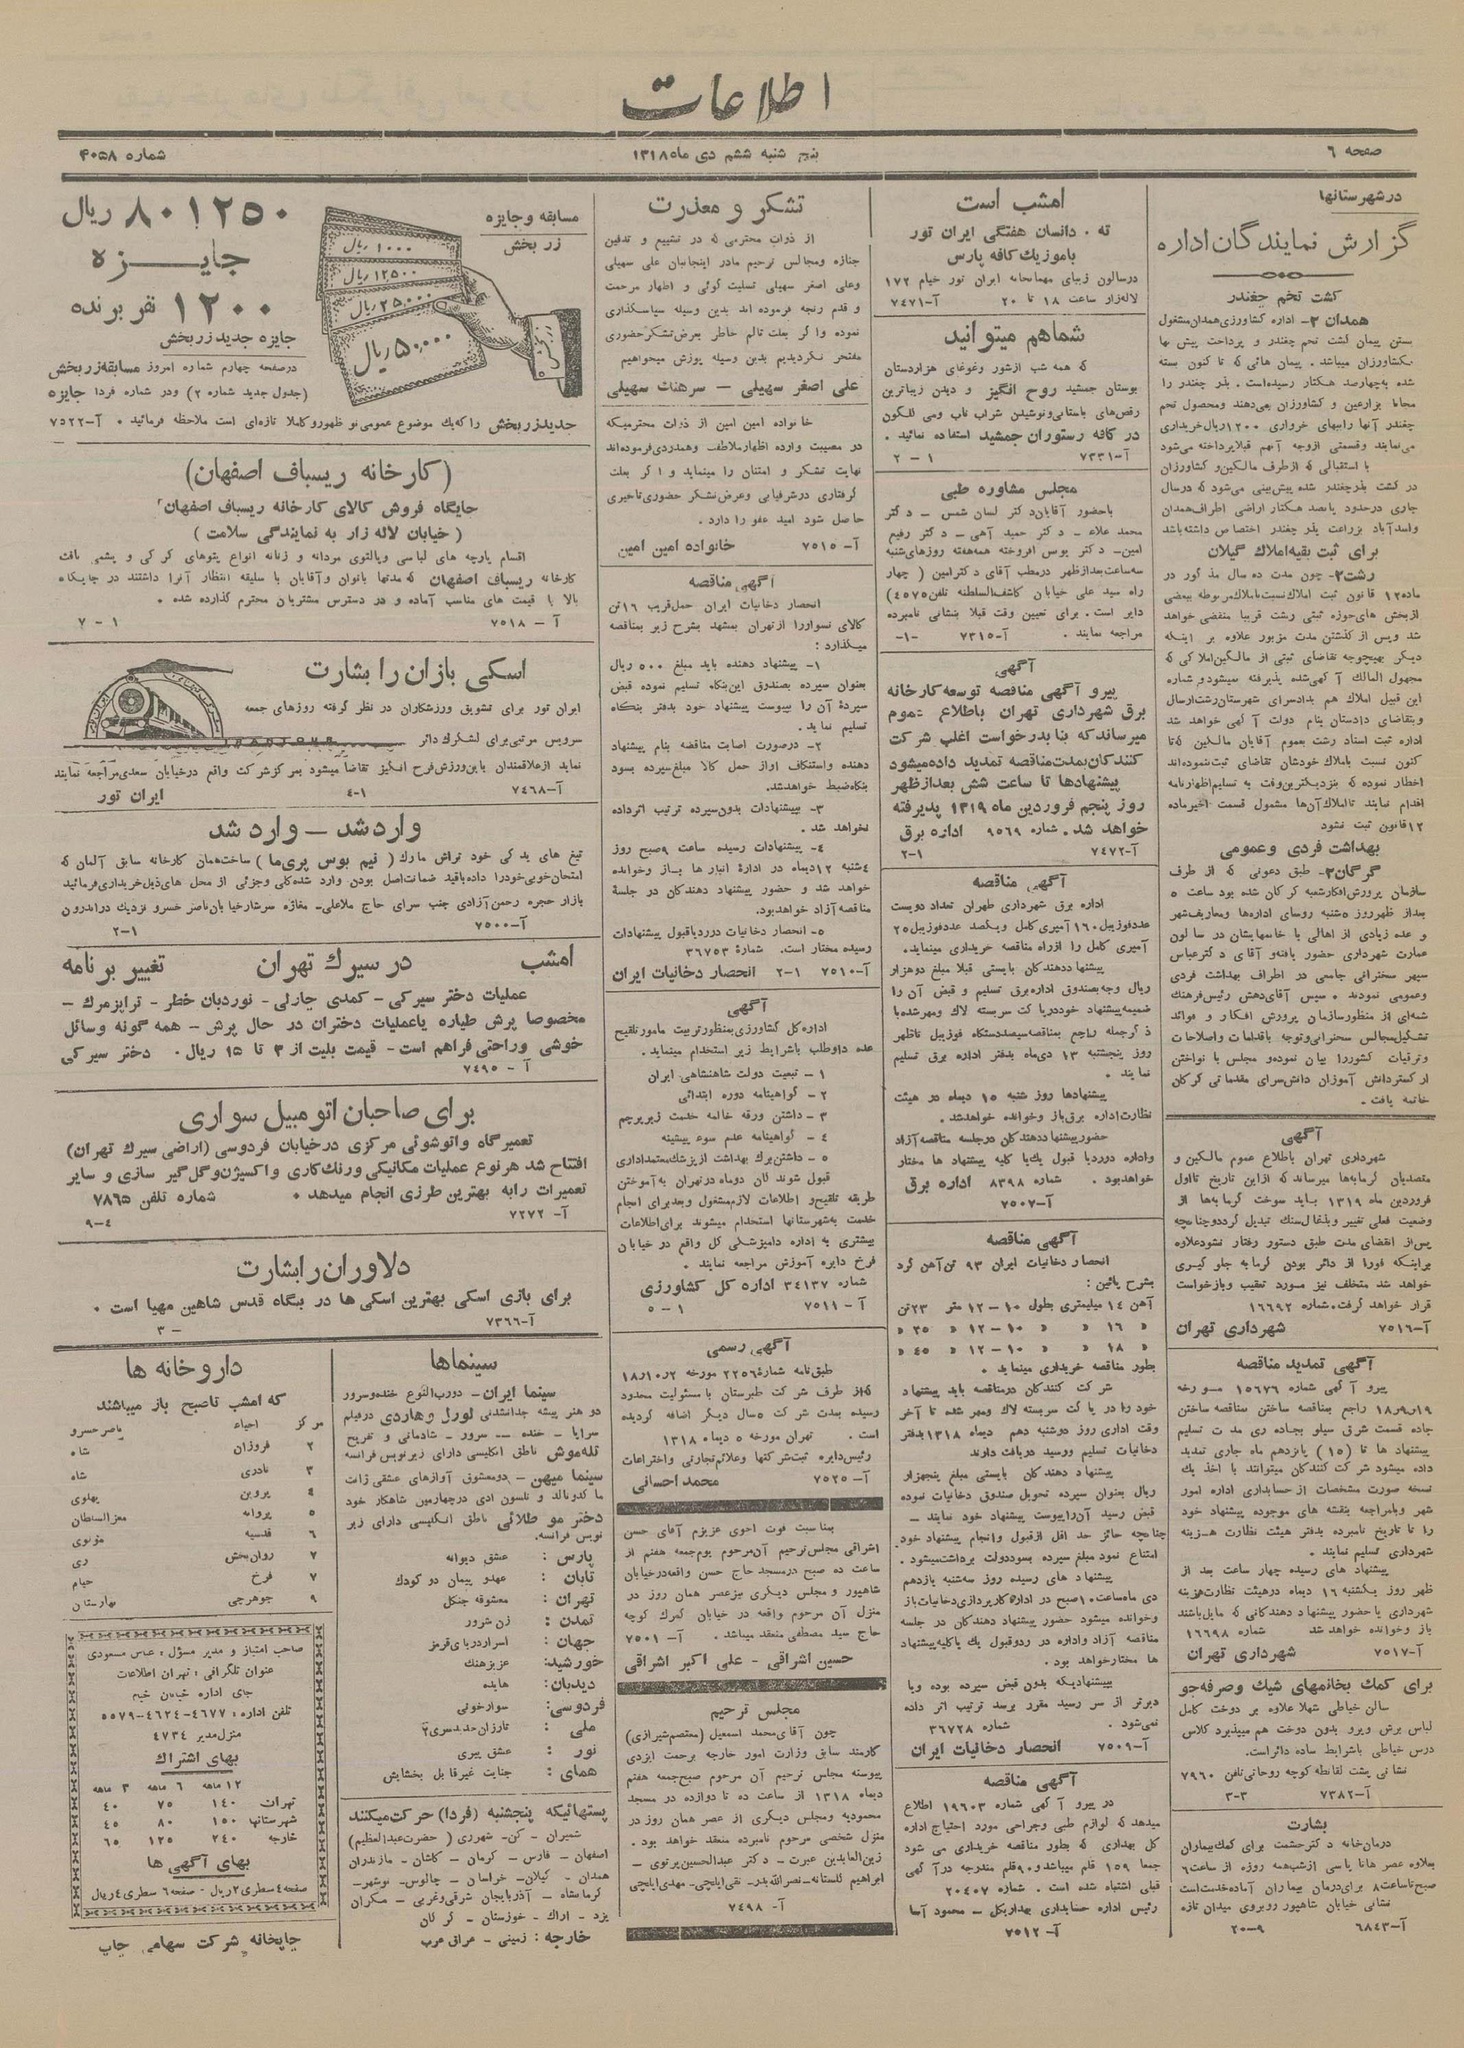 اطلاعات
صفحه ۶
پنج شنبه ششم دی ماه ۱۳۱۸
شماره ۴۰۵۸
در شهرستانها
گزارش نمایندگان اداره
کشت تخم چغندر
همدان ۲- اداره کشاورزی همدان مشغول
بستن پیمان کشت تخم چغندر و پرداخت پیش بها
بکشاورزان میباشد. پیمان هائی که تا کنون بسته
شده به چهارصد هکتار رسیده است. بذر چغندر را
مجانا بزارعین و کشاورزان می‌دهند و محصول تخم
چغندر آنها را ببهای خرواری ۱۲۰۰ ریال خریداری
می‌نمایند و قسمتی از وجه آنهم قبلا پرداخته می‌شود
با استقبالی که از طرف مالکین و کشاورزان
در کشت بذر چغندر شده پیش‌بینی می‌شود که در سال
جاری در حدود پانصد هکتار اراضی اطراف همدان
و اسدآباد بزراعت بذر چغندر اختصاص داشته باشد
برای ثبت بقیه املاک گیلان
رشت ۲- چون مدت ده سال مذکور در
ماده ۱۲ قانون ثبت املاک نسبت باملاک مربوطه ببعضی
از بخش های حوزه ثبتی رشت قریبا منقضی خواهد
شد و پس از گذشتن مدت مزبور علاوه بر اینکه
دیگر بهیچوجه تقاضای ثبتی از مالکین املاکی که
مجهول المالک آگهی شده پذیرفته نمیشود و شماره
این قبیل املاک هم بدادسرای شهرستان رشت ارسال
و بتقاضای دادستان بنام دولت آگهی خواهد شد
اداره ثبت اسناد رشت بعموم آقایان مالکین که تا
کنون نسبت باملاک خودشان تقاضای ثبت ننموده‌اند
اخطار نموده که بنزدیکترین وقت به تسلیم اظهارنامه
اقدام نمایند تا املاک آن‌ها مشمول قسمت اخیر ماده
۱۲ قانون ثبت نشود
بهداشت فردی و عمومی
گرگان ۳- طبق دعوتی که از طرف
سازمان پرورش افکار شعبه گرگان شده بود ساعت ۵
بعد از ظهر روز ۵ شنبه روسای اداره‌ها و معاریف شهر
و عده زیادی از اهالی با خانمهایشان در سالون
عمارت شهرداری حضور یافته و آقای دکتر عباس
سپهر سخنرانی جامعی در اطراف بهداشت فردی
و عمومی نمودند. سپس آقای دهش رئیس فرهنگ
شمه‌ای از منظور سازمان پرورش افکار و فوائد
تشکیل مجالس سخنرانی و توجه باقدامات و اصلاحات
و ترقیات کشور را بیان نموده و مجلس با نواختن
ارکستر دانش آموزان دانش‌سرای مقدماتی گرگان
خاتمه یافت.
آگهی
شهرداری تهران باطلاع عموم مالکین و
متصدیان گرمابه‌ها میرساند که از این تاریخ تا اول
فروردین ماه ۱۳۱۹ باید سوخت گرمابه‌ها از
وضعیت فعلی تغییر و بذغال‌سنگ تبدیل گردد و چنانچه
پس از انقضای مدت طبق دستور رفتار نشود علاوه
بر اینکه فورا از دائر بودن گرمابه جلوگیری
خواهد شد متخلف نیز مورد تعقیب و بازخواست
قرار خواهد گرفت. شماره ۱۶۶۹۲
آ-۷۵۱۶ شهرداری تهران
آگهی تمدید مناقصه
پیرو آگهی شماره ۱۵۶۷۶ مورخه
۱۸ر۹ر۱۹ راجع بمناقصه ساختن مناقصه ساختن
جاده قسمت شرق سیلو بجاده ری مدت تسلیم
پیشنهاد ها تا (۱۵) پانزدهم ماه جاری تمدید
داده میشود شرکت کنندگان میتوانند با اخذ یک
نسخه صورت مشخصات از حسابداری اداره امور
شهر و با مراجعه بنقشه های موجوده پیشنهاد خود
را تا تاریخ نامبرده بدفتر هیئت نظارت هزینه
شهرداری تسلیم نمایند.
پیشنهاد های رسیده چهار ساعت بعد از
ظهر روز یکشنبه ۱۶ دیماه در هیئت نظارت هزینه
شهرداری با حضور پیشنهاد دهندگانی که مایل باشند
باز و خوانده خواهد شد شماره ۱۶۶۹۸
آ-۷۵۱۷ شهرداری تهران
برای کمک بخانمهای شیک و صرفه جو
سالن خیاطی شهلا علاوه بر دوخت کامل
لباس برش و پرو بدون دوخت هم میپذیرد کلاس
درس خیاطی باشرایط ساده دائر است.
نشانی پشت لقانطه کوچه روحانی تلفن ۷۹۶۰
آ-۷۳۸۲ ۳-۳
بشارت
درمان‌خانه دکتر حشمت برای کمک بیماران
بعلاوه عصر ها تا پاسی از شب همه روزه از ساعت ۶
صبح تا ساعت ۸ برای درمان بیماران آماده خدمت است
نشانی خیابان شاهپور روبروی میدان تازه
آ-۶۸۴۳ ۹-۲۰
امشب است
ته. دانسان هفتگی ایران تور
باموزیک کافه پارس
در سالون زیبای مهمانخانه ایران تور خیام ۱۷۲
لاله‌زار ساعت ۱۸ تا ۲۰ آ-۷۴۷۱
شماهم میتوانید
که همه شب از شور و غوغای هزاردستان
بوستان جمشید روح انگیز و دیدن زیباترین
رقص‌های باستانی و نوشیدن شراب ناب و می للگون
در کافه رستوران جمشید استفاده نمائید.
آ-۷۳۳۱ ۱-۲
مجلس مشاوره طبی
باحضور آقایان دکتر لسان شمس - دکتر
محمد علاء - دکتر حمید آهی - دکتر رفیع
امین - دکتر یونس افروخته همه هفته روزهای شنبه
سه ساعت بعد از ظهر در مطب آقای دکتر امین (چهار
راه سید علی خیابان کاشف السلطنه تلفن ۴۵۷۵)
دایر است. برای تعیین وقت قبلا بنشانی نامبرده
مراجعه نمایند. آ-۷۳۱۵ -۱-
آگهی
پیرو آگهی مناقصه توسعه کارخانه
برق شهرداری تهران باطلاع عموم
میرساند که بنا بدرخواست اغلب شرکت
کنندگان بمدت مناقصه تمدید داده میشود
پیشنهادها تا ساعت شش بعد از ظهر
روز پنجم فروردین ماه ۱۳۱۹ پذیرفته
خواهد شد. شماره ۹۵۶۹ اداره برق
آ-۷۴۷۲ ۱-۲
آگهی مناقصه
اداره برق شهرداری طهران تعداد دویست
عدد فوزیبل ۱۶۰ آمپری کامل و یکصد عدد فوزیبل ۲۵
آمپری کامل را از راه مناقصه خریداری مینماید.
پیشنهاد دهندگان بایستی قبلا مبلغ دو هزار
ریال وجه بصندوق اداره برق تسلیم و قبض آن را
ضمیمه پیشنهاد خود در پاکت سربسته لاک و مهر شده با
ذکر جمله راجع بمناقصه سیصد دستگاه فوزیبل تا ظهر
روز پنجشنبه ۱۳ دی‌ماه بدفتر اداره برق تسلیم
نمایند.
پیشنهادها روز شنبه ۱۵ دیماه در هیئت
نظارت اداره برق باز و خوانده خواهد شد.
حضور پیشنهاد دهندگان در جلسه مناقصه آزاد
و اداره در رد یا قبول یک یا کلیه پیشنهاد ها مختار
خواهد بود. شماره ۸۳۹۸ اداره برق
آ-۷۵۰۷
آگهی مناقصه
انحصار دخانیات ایران ۹۳ تن آهن گرد
بشرح پائین:
آهن ۱۴ میلیمتری بطول ۱۰-۱۲ متر ۲۳ تن
« ۱۶ « « ۱۰-۱۲ « ۲۵ «
« ۱۸ « « ۱۰-۱۲ « ۴۵ «
بطور مناقصه خریداری مینماید.
شرکت کنندگان در مناقصه باید پیشنهاد
خود را در پاکت سربسته لاک و مهر شده تا آخر
وقت اداری روز دوشنبه دهم دیماه ۱۳۱۸ بدفتر
دخانیات تسلیم و رسید دریافت دارند
پیشنهاد دهندگان بایستی مبلغ پنجهزار
ریال بعنوان سپرده تحویل صندوق دخانیات نموده
قبض رسید آن را پیوست پیشنهاد خود نمایند -
چنانچه حائز حداقل از قبول و انجام پیشنهاد خود
امتناع نمود مبلغ سپرده بسود دولت برداشت میشود.
پیشنهاد های رسیده روز سه‌شنبه یازدهم
دی ماه ساعت ۱۰ صبح در اداره کارپردازی دخانیات باز
و خوانده میشود حضور پیشنهاد دهندگان در جلسه
مناقصه آزاد و اداره در رد و قبول یک یا کلیه پیشنهاد
ها مختار خواهد بود.
پیشنهادیکه بدون قبض سپرده بوده و یا
دیرتر از سر رسید مقرر برسد ترتیب اثر داده
نمی‌شود. شماره ۳۶۷۲۸
آ-۷۵۰۹ انحصار دخانیات ایران
آگهی مناقصه
در پیرو آگهی شماره ۱۹۶۰۳ اطلاع
میدهد که لوازم طبی و جراحی مورد احتیاج اداره
کل بهداری که بطور مناقصه خریداری می شود
جمعا ۱۵۹ قلم میباشد و ۹۰ قلم مندرجه در آگهی
قبلی اشتباه شده است. شماره ۲۰۴۰۷
رئیس اداره حسابداری بهداری کل - محمود آسا
آ-۷۵۱۲
تشکر و معذرت
از ذوات محترمی که در تشییع و تدفین
جنازه و مجالس ترحیم مادر اینجانبان علی سهیلی
و علی اصغر سهیلی تسلیت گوئی و اظهار مرحمت
و قدم رنجه فرموده اند بدین وسیله سپاسگذاری
نموده و اگر بعلت تالم خاطر بعرض تشکر حضوری
مفتخر نگردیدیم بدین وسیله پوزش میخواهیم
علی اصغر سهیلی - سرهنگ سهیلی
خانواده امین امین از ذوات محترمیکه
در مصیبت وارده اظهار ملاطفت و همدردی فرموده‌اند
نهایت تشکر و امتنان را مینماید و اگر بعلت
گرفتاری در شرفیابی و عرض تشکر حضوری تاخیری
حاصل شود امید عفو را دارد.
آ-۷۵۱۵ خانواده امین امین
آگهی مناقصه
انحصار دخانیات ایران حمل قریب ۱۶ تن
کالای نسوار را از تهران بمشهد بشرح زیر بمناقصه
میگذارد:
۱- پیشنهاد دهنده باید مبلغ ۵۰۰ ریال
بعنوان سپرده بصندوق این بنگاه تسلیم نموده قبض
سپردهٔ آن را بپیوست پیشنهاد خود بدفتر بنگاه
تسلیم نماید.
۲- در صورت اصابت مناقصه بنام پیشنهاد
دهنده و استنکاف او از حمل کالا مبلغ سپرده بسود
بنگاه ضبط خواهد شد.
۳- بپیشنهادات بدون سپرده ترتیب اثر داده
نخواهد شد.
۴- پیشنهادات رسیده ساعت ۹ صبح روز
۴ شنبه ۱۲ دیماه در ادارهٔ انبار ها باز و خوانده
خواهد شد و حضور پیشنهاد دهندگان در جلسهٔ
مناقصه آزاد خواهد بود.
۵- انحصار دخانیات در رد یا قبول پیشنهادات
رسیده مختار است. شمارهٔ ۳۶۷۵۳
آ-۷۵۱۰ ۱-۲ انحصار دخانیات ایران
آگهی
اداره کل کشاورزی بمنظور تربیت مامور تلقیح
عده داوطلب باشرایط زیر استخدام مینماید.
۱- تبعیت دولت شاهنشاهی ایران
۲- گواهینامه دوره ابتدائی
۳- داشتن ورقه خاتمه خدمت زیر پرچم
۴- گواهینامه عدم سوء پیشینه
۵- داشتن برگ بهداشت از پزشک معتمد اداری
قبول شوندگان دو ماه در تهران به آموختن
طریقه تلقیح و اطلاعات لازم مشغول و بعد برای انجام
خدمت به شهرستانها استخدام میشوند برای اطلاعات
بیشتری به اداره دامپزشکی کل واقع در خیابان
فرخ دایره آموزش مراجعه نمایند.
شماره ۳۴۱۳۷ اداره کل کشاورزی
آ-۷۵۱۱ ۱-۵
آگهی رسمی
طبق نامه شمارهٔ ۲۲۵۶ مورخه ۱۸ر۱۰ر۲
که از طرف شرکت طبرستان با مسئولیت محدود
رسیده بمدت شرکت ۵ سال دیگر اضافه گردیده
است. تهران مورخه ۵ دیماه ۱۳۱۸
رئیس دایره ثبت شرکتها و علائم تجارتی و اختراعات
آ-۷۵۲۵ محمد احسانی
بمناسبت فوت اخوی عزیزم آقای حسن
اشراقی مجلس ترحیم آن مرحوم یوم جمعه هفتم از
ساعت ده صبح در مسجد حاج حسن واقعه در خیابان
شاهپور و مجلس دیگری نیز عصر همان روز در
منزل آن مرحوم واقعه در خیابان گمرک کوچه
حاج سید مصطفی منعقد میباشد. آ-۷۵۰۱
حسین اشراقی - علی اکبر اشراقی
مجلس ترحیم
چون آقای محمد اسمعیل (معتصم شیرازی)
کارمند سابق وزارت امور خارجه برحمت ایزدی
پیوسته مجلس ترحیم آن مرحوم صبح جمعه هفتم
دیماه ۱۳۱۸ از ساعت ده تا دوازده در مسجد
محمودیه و مجلس دیگری از عصر همان روز در
منزل شخصی مرحوم نامبرده منعقد خواهد بود.
زین العابدین عبرت - دکتر عبدالحسین پرتوی -
ابراهیم گلستانه - نصرالله بدر - نقی ایلچی - مهدی ایلچی
آ-۷۴۹۸
مسابقه و جایزه
زر بخش
۸۰۱۲۵۰ ریال
جایزه
۱۲۰۰ نفر برنده
جایزه جدید زربخش
۱۰۰۰ ریال
۱۲۵۰۰ ریال
۲۵۰۰۰ ریال
۵۰,۰۰۰ ریال
زربخش
در صفحه چهارم شماره امروز مسابقه زربخش
(جدول جدید شماره ۲) و در شماره فردا جایزه
جدید زربخش را که یک موضوع عمومی نو ظهور و کاملا تازه‌ای است ملاحظه فرمائید. آ-۷۵۲۲
(کارخانه ریسباف اصفهان)
جایگاه فروش کالای کارخانه ریسباف اصفهان
(خیابان لاله زار به نمایندگی سلامت)
اقسام پارچه های لباسی و پالتوی مردانه و زنانه انواع پتوهای کرکی و پشمی بافت
کارخانه ریسباف اصفهان که مدتها بانوان و آقایان با سلیقه انتظار آنرا داشتند در جایگاه
بالا با قیمت های مناسب آماده و در دسترس مشتریان محترم گذارده شده.
آ-۷۵۱۸ ۱-۷
اسکی بازان را بشارت
ایران تور برای تشویق ورزشکاران در نظر گرفته روزهای جمعه
سرویس مرتبی برای لشگرک دائر
IRANTOUR
نماید از علاقمندان باین ورزش فرح انگیز تقاضا میشود بمرکز شرکت واقع در خیابان سعدی مراجعه نمایند
آ-۷۴۶۸ ۱-۴ ایران تور
وارد شد - وارد شد
تیغ های یدکی خود تراش مارک (نیم بوس پری‌ما) ساخت همان کارخانه سابق آلمان که
امتحان خوبی خود را داده باقید ضمانت اصل بودن وارد شده کلی و جزئی از محل های ذیل خریداری فرمائید
بازار حجره رحمن آزادی جنب سرای حاج ملاعلی - مغازه سرشار خیابان ناصر خسرو نزدیک در اندرون
آ-۷۵۰۰ ۱-۲
امشب در سیرک تهران تغییر برنامه
عملیات دختر سیرکی - کمدی چارلی - نوردبان خطر - تراپز مرگ -
مخصوصا پرش طیاره با عملیات دختران در حال پرش - همه گونه وسائل
خوشی و راحتی فراهم است - قیمت بلیت از ۳ تا ۱۵ ریال. دختر سیرکی
آ-۷۴۹۵
برای صاحبان اتومبیل سواری
تعمیرگاه و اتوشوئی مرکزی در خیابان فردوسی (اراضی سیرک تهران)
افتتاح شد هر نوع عملیات مکانیکی و رنگ کاری و اکسیژن و گل گیر سازی و سایر
تعمیرات را به بهترین طرزی انجام میدهد. شماره تلفن ۷۸۶۵
آ-۷۲۷۲ ۴-۹
دلاوران را بشارت
برای بازی اسکی بهترین اسکی ها در بنگاه قدس شاهین مهیا است.
آ-۷۳۶۶ -۳
سینماها
سینما ایران - دو رب النوع خنده و سرور
دو هنر پیشه جدانشدنی لورل و هاردی در فیلم
سراپا - خنده - سرور - شادمانی و تفریح
تله موش ناطق انگلیسی دارای زیرنویس فرانسه
سینما میهن - دو معشوق آوازهای عشقی ژانت
ماکدونالد و نلسون ادی در چهارمین شاهکار خود
دختر مو طلائی ناطق انگلیسی دارای زیر
نویس فرانسه.
پارس: عشق دیوانه
تابان: عهد و پیمان دو کودک
تهران: معشوقه جنگل
تمدن: زن شرور
جهان: اسرار دریای قرمز
خورشید: عزیز هنک
دیدبان: هایده
فردوسی: سوار خونی
ملی: تارزان جدید سری ۲
نور: عشق پیری
همای: جنایت غیر قابل بخشایش
پستهائیکه پنجشنبه (فردا) حرکت میکنند
شمیران - کن - شهرری (حضرت عبدالعظیم)
اصفهان - فارس - کرمان - کاشان - مازندران
همدان - گیلان - خراسان - چالوس - نوشهر -
کرمانشاه - آذربایجان شرقی و غربی - مکران
یزد - اراک - خوزستان - گرگان
خارجه: زمینی - عراق عرب
داروخانه ها
که امشب تا صبح باز میباشند
مرکز احیاء ناصر خسرو
۲ فروزان شاه
۳ نادری شاه
۴ پروین پهلوی
۵ پروانه معز السلطان
۶ قدسیه مولوی
۷ روان بخش ری
۷ فرخ خیام
۹ جوهرچی بهارستان
صاحب امتیاز و مدیر مسؤل: عباس مسعودی
عنوان تلگرافی: تهران اطلاعات
جای اداره خیابان خیام
تلفن اداره: ۴۶۷۷-۴۶۲۴-۵۵۷۹
منزل مدیر ۴۷۳۴
بهای اشتراک
۱۲ ماهه ۶ ماهه ۳ ماهه
تهران ۱۴۰ ۷۵ ۴۰
شهرستانها ۱۵۰ ۸۰ ۴۵
خارجه ۲۴۰ ۱۲۵ ۶۵
بهای آگهی ها
صفحه ۴ سطری ۲ ریال - صفحه ۶ سطری ۴ ریال
چاپخانه شرکت سهامی چاپ